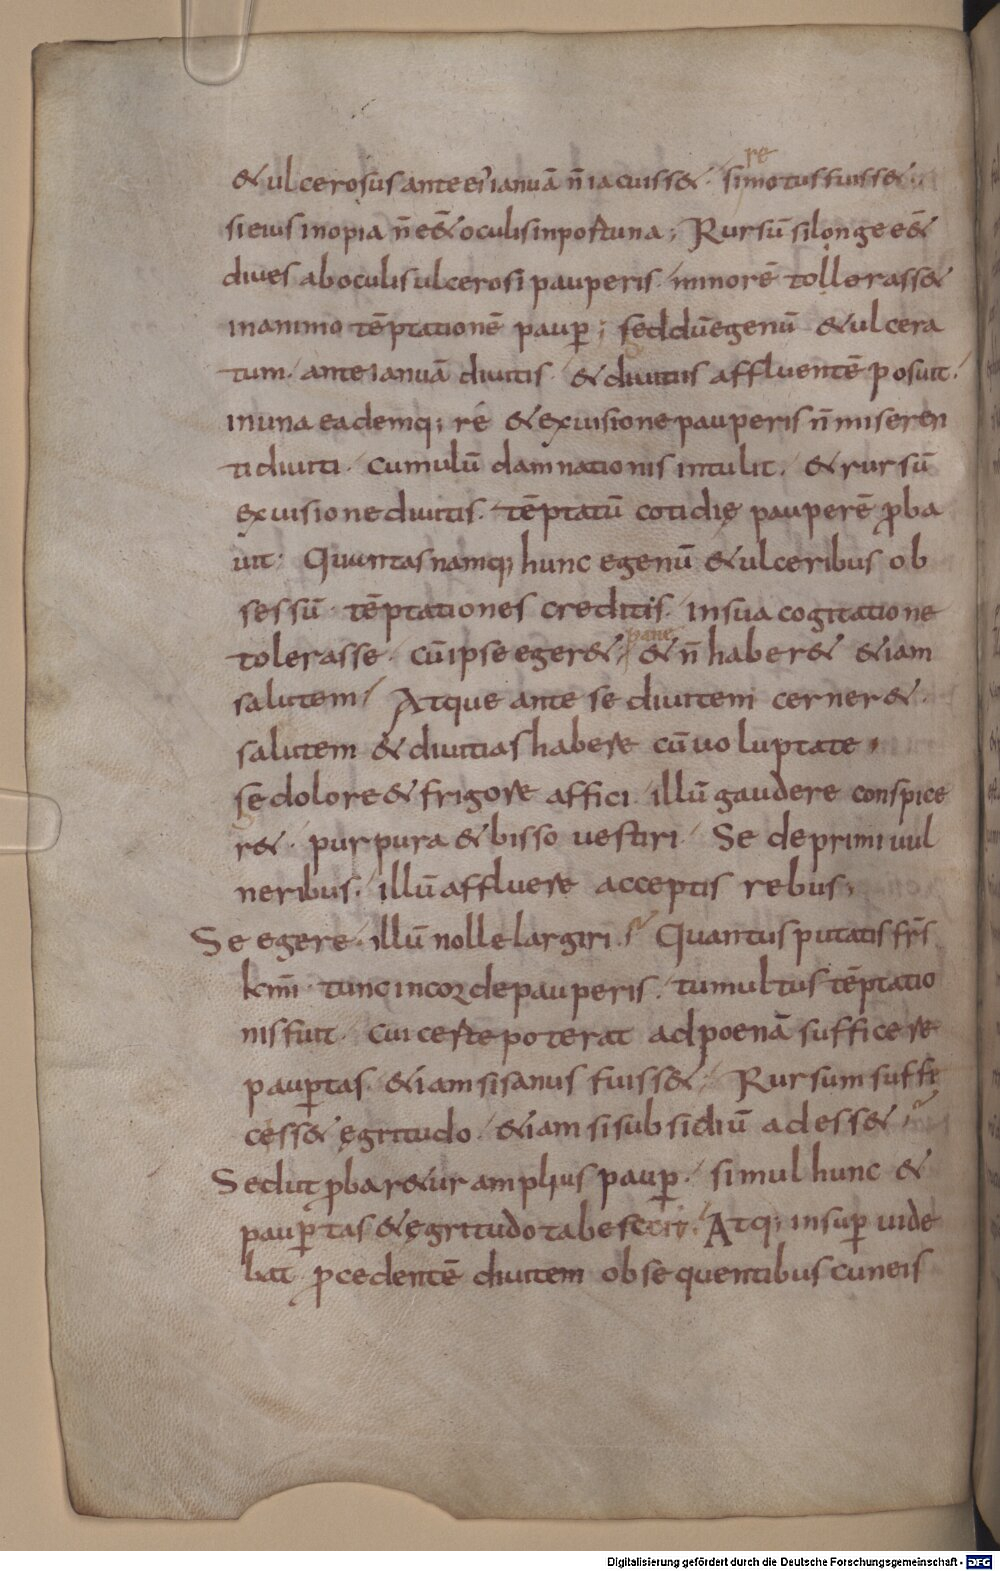 re
& ulcerosus ante ei' ianuā n̄ iacuiss&. si motus fuiss&
si eius inopia n̄ e&̄ oculis inportuna; Rursū si longe e&̄
diues ab oculis ulcerosi pauperis. minorē tollerass&
in animo tēptationē paup̱; sed dū egenū & ulcera
tum. ante ianuā diuitis. & diuitiis affluentē posuit.
in una eademq; re & ex uisione pauperis n̄ miseren
ti diuiti. cumulū damnationis intulit. & rursū
ex uisione diuitis. tēptatū cotidię pauperē ꝓba
uit; Quantas namq; hunc egenū & ulceribus ob
sessū. tēptationes creditis. in sua cogitatione
pane
tolerasse. cū ipse eger&. & n̄ haber& & iam
salutem. Atque ante se diuitem cerner&.
salutem & diuitias habere cū uoluptate.
se dolore & frigore affici. illū gaudere conspice
r&. purpura & bisso uestiri. Se deprimi uul
neribus. illū affluere acceptis rebus;
Se egere. illū nolle largiri. Quantus putatis fr̄s
km̄i. tunc in corde pauperis. tumultus tēptatio
nis fuit. cui certe poterat ad poenā sufficere
paup̱tas. & iam si sanus fuiss&. Rursum suffe
cess& ęgritudo. & iam si subsidiū adess&.
Sed ut ꝓbar&ur amplius paup̱. simul hunc &
paup̱tas & ęgritudo tabefecit. Atq; insup̱ uide
bat ꝓcedentē diuitem obsequentibus cuneis
Digitalisierung gefördert durch die Deutsche Forschungsgemeinschaft - DFG